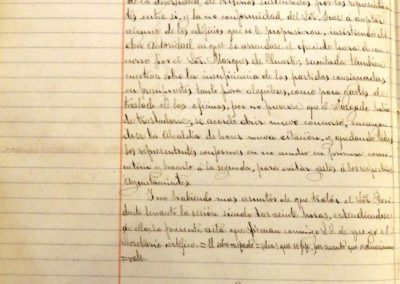 de la diversidad de criterios sustentados por los represen-
tantes entre si, y la no conformidad del Sor. Juez a aceptar
alguno de los edificios que se le proponian, insistiendo di-
cha Autoridad en que se arrendase el ofrecido fuera de con-
curso por el Sor. Marques de
cuestion sobre la insuficiencia de las partidas consignadas
en presupuestos tanto para alquileres, como para gastos de
traslado de las oficinas, por no preverse que el Juzgado habria
de trasladarse; se acordó abrir nuevo concurso, encargan-
dose la Alcaldia de hacer nueva citación, y quedando todos
los representantes conformes en no acudir en primera convo-
catoria y hacerlo á la segunda, para evitar gastos á los respectivos
Ayuntamientos.
Y no habiendo mas asuntos de que tratar el Sor. Presi-
dente levantó la sesión siendo las veinte horas, extendiendose
de ella la presente acta que firman conmigo S.S. de que yo el
Secretario certifico.=
=vale.